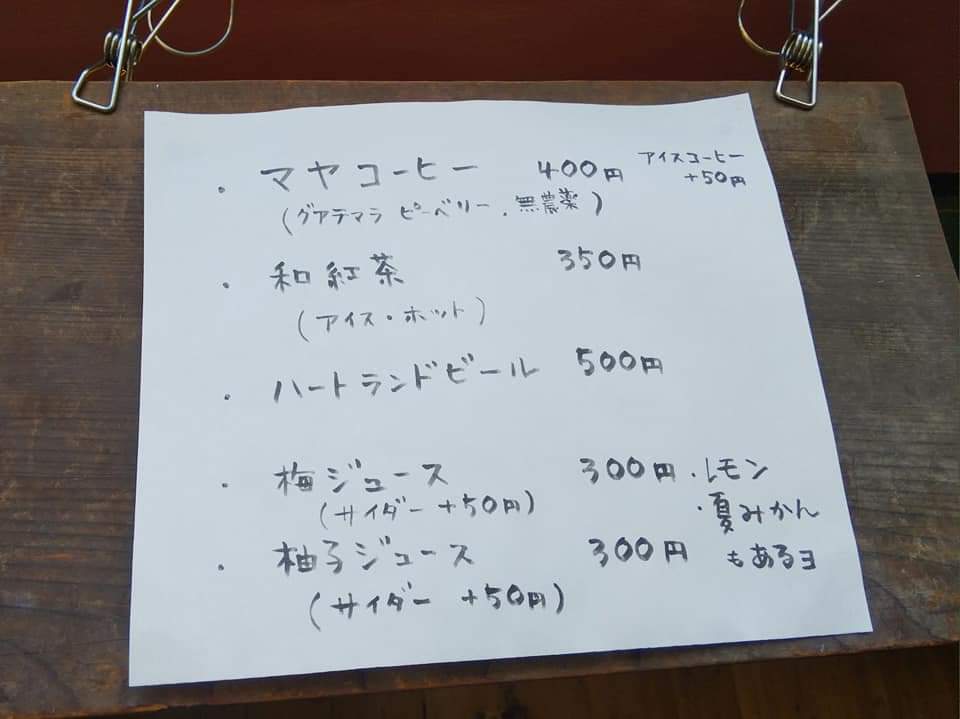 ・マヤコーヒー 400円 アイスコーヒー
+50円
(グアテマラ ピーベリー、無農薬)
・和紅茶 350円
(アイス・ホット)
・ハートランドビール 500円
・梅ジュース 300円 ・レモン
(サイダー +50円) ・夏みかん
・柚子ジュース 300円 もあるヨ
(サイダー +50円)